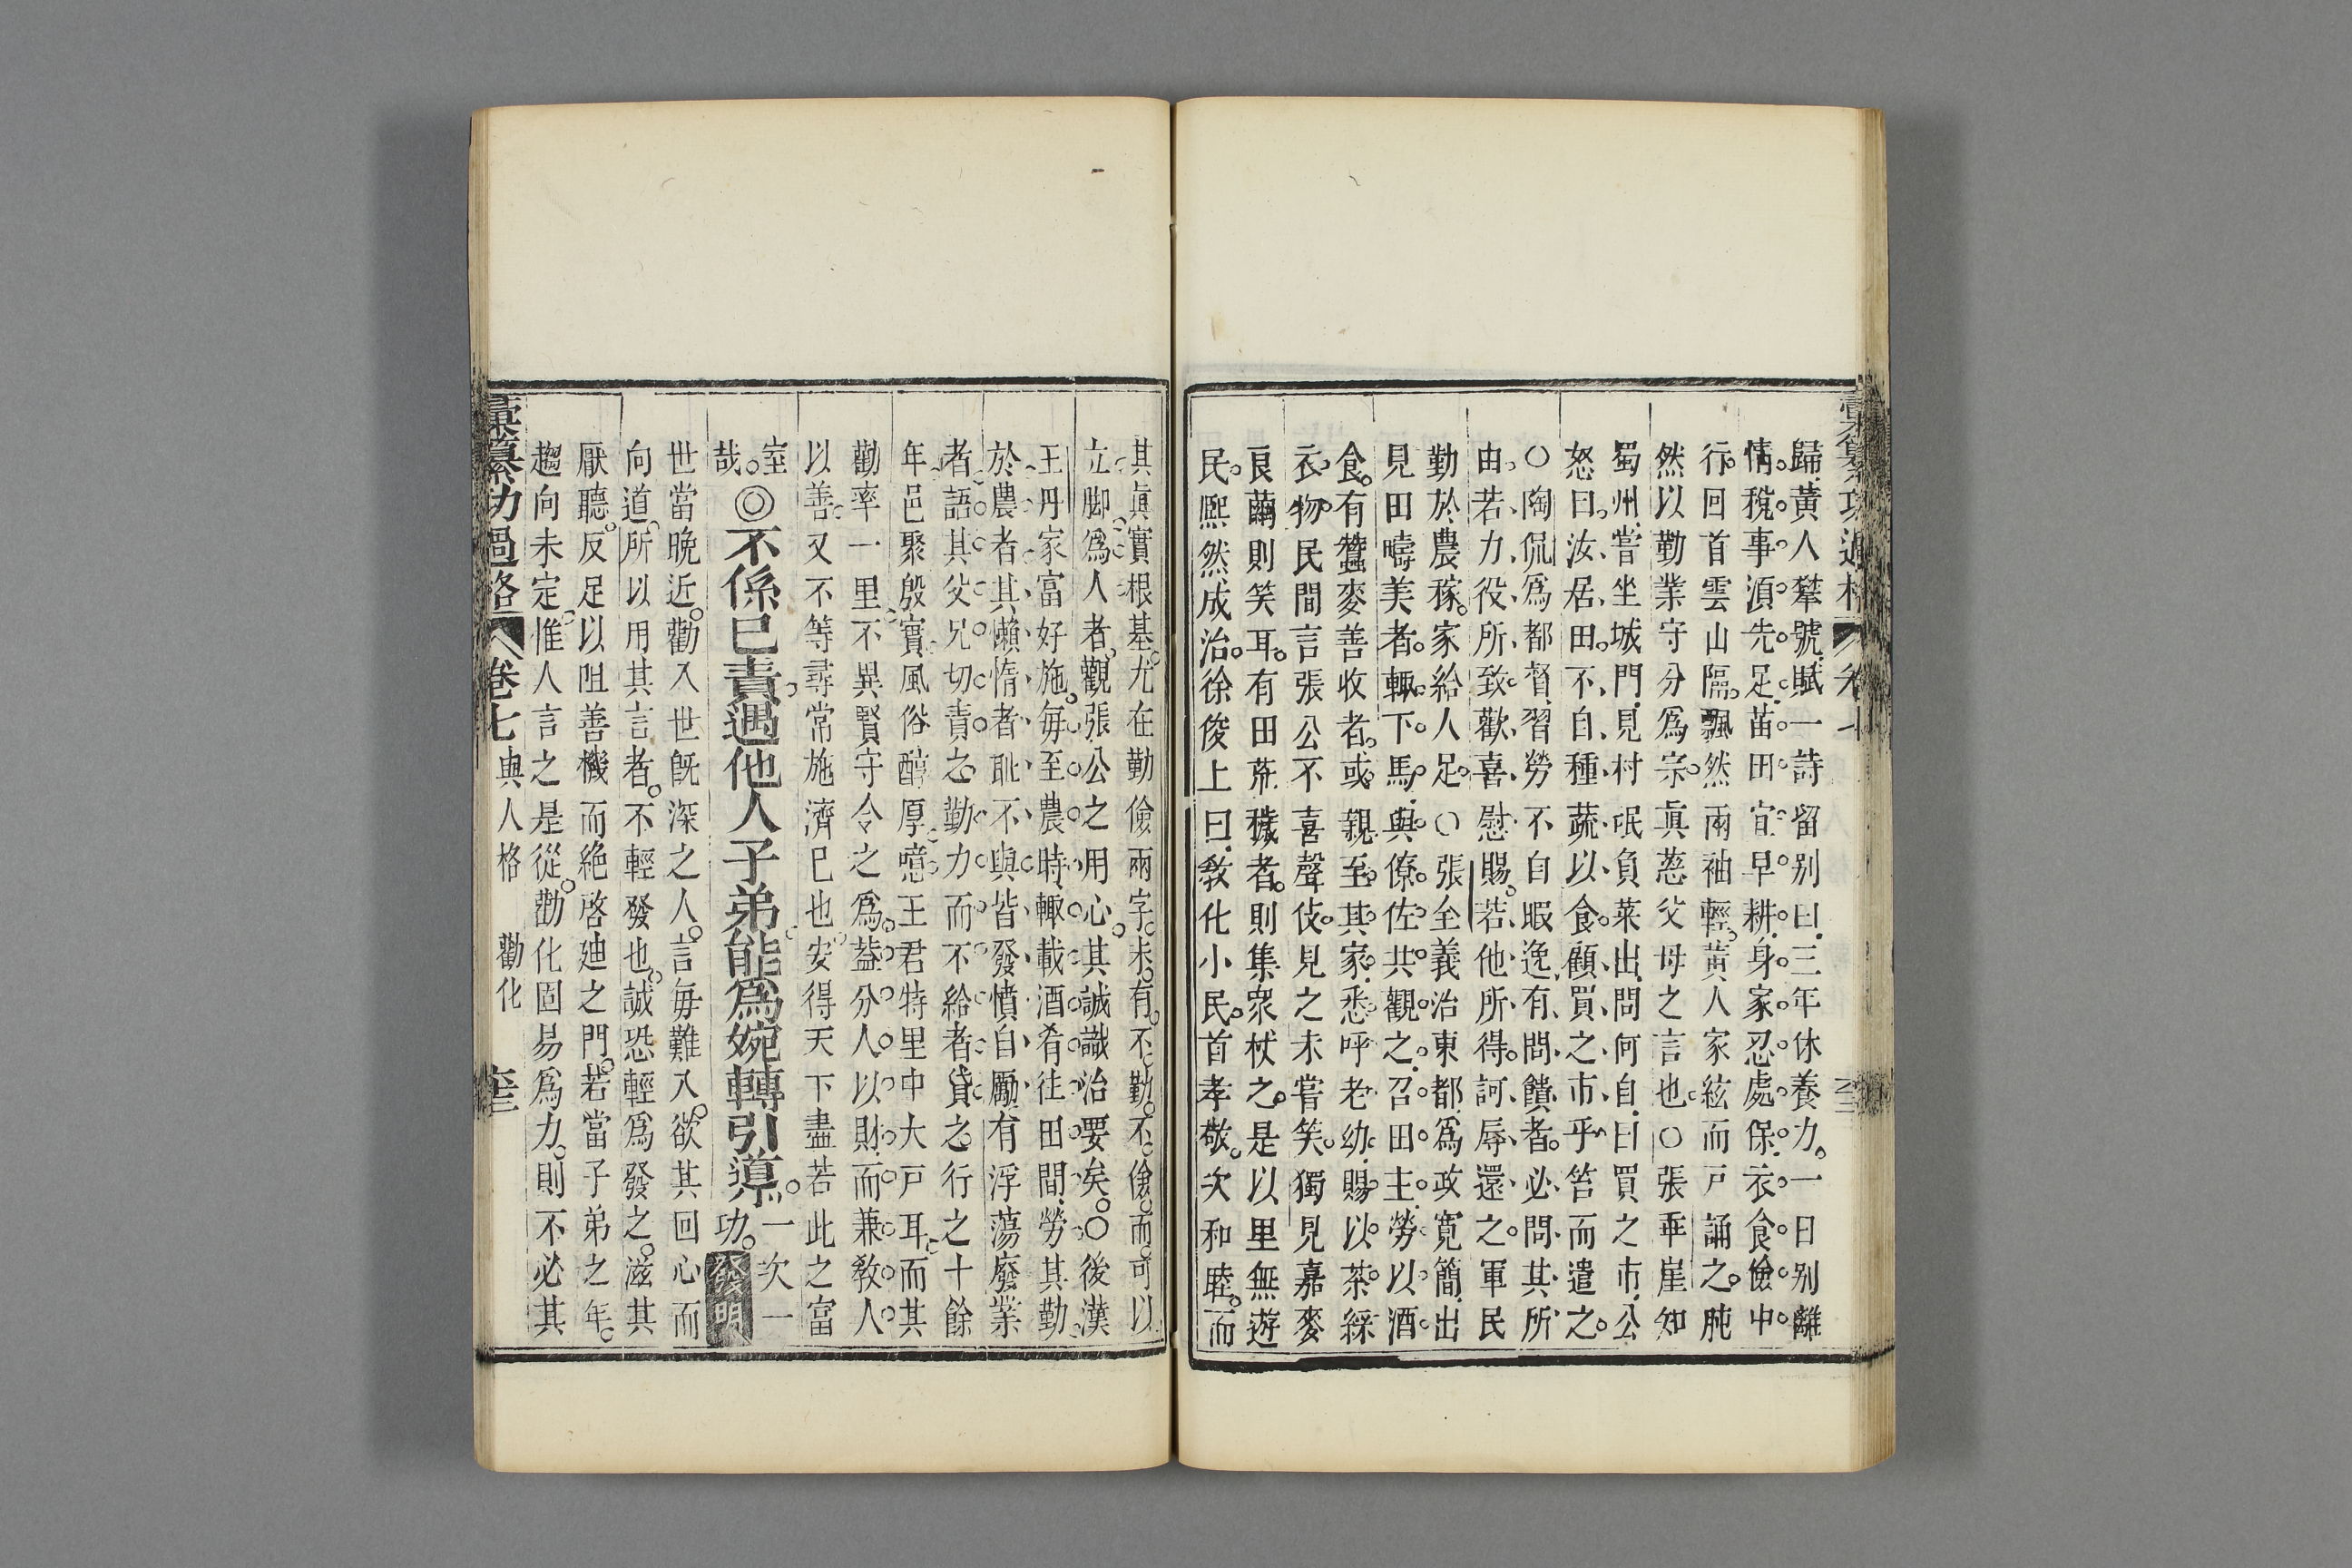 歸黃人犂號賦一詩留别曰三年休養力一日别離
情稅事湏先足苗田宜早耕身家忍處保衣食儉中
行回首雲山隔飄然兩袖輕黃人家絃而戸誦之肫
然以勤業守分爲宗眞慈父母之言也○張乖崖知
蜀州嘗坐城門見村氓負菜出問何自曰買之市公
怒曰汝居田不自種蔬以食顧買之市乎笞而遣之
○陶侃爲都督習勞不自暇逸有問饋者必問其所
由若力役所致歡喜慰賜若他所得訶辱還之軍民
勤於農稼家給人足○張全義治東都爲政寛簡出
見田疇美者輙下馬與僚佐共觀之召田主勞以酒
食有蠶麥善收者或親至其家悉呼老幼賜以茶綵
衣物民間言張公不喜聲伎見之未嘗笑獨見嘉麥
良繭則笑耳有田荒穢者則集衆杖之是以里無遊
民熈然成治徐俊上曰敎化小民首孝敬次和睦而
其眞實根基尤在勤儉兩字未有不勤不儉而可以
立脚爲人者觀張公之用心其誠識治要矣○後漢
王丹家富好施毎至農時輙載酒肴往田間勞其勤
於農者其懶惰者耻不與皆發憤自勵有浮蕩廢業
者語其父兄切責之勤力而不給者貸之行之十餘
年邑聚殷實風俗醇厚噫王君特里中大戸耳而其
勸率一里不異賢守令之爲葢分人以財而兼敎人
以善又不等尋常施濟已也安得天下盡若此之富
室
哉◎不係已責遇他人子弟能爲婉轉引導一次一
功發明
世當晩近勸入世旣深之人言毎難入欲其回心而
向道所以用其言者不輕發也誠恐輕爲發之滋其
厭聽反足以阻善機而絶啓廸之門若當子弟之年
趨向未定惟人言之是從勸化固易爲力則不必其
彙纂功過格 卷七 與人格 勸化